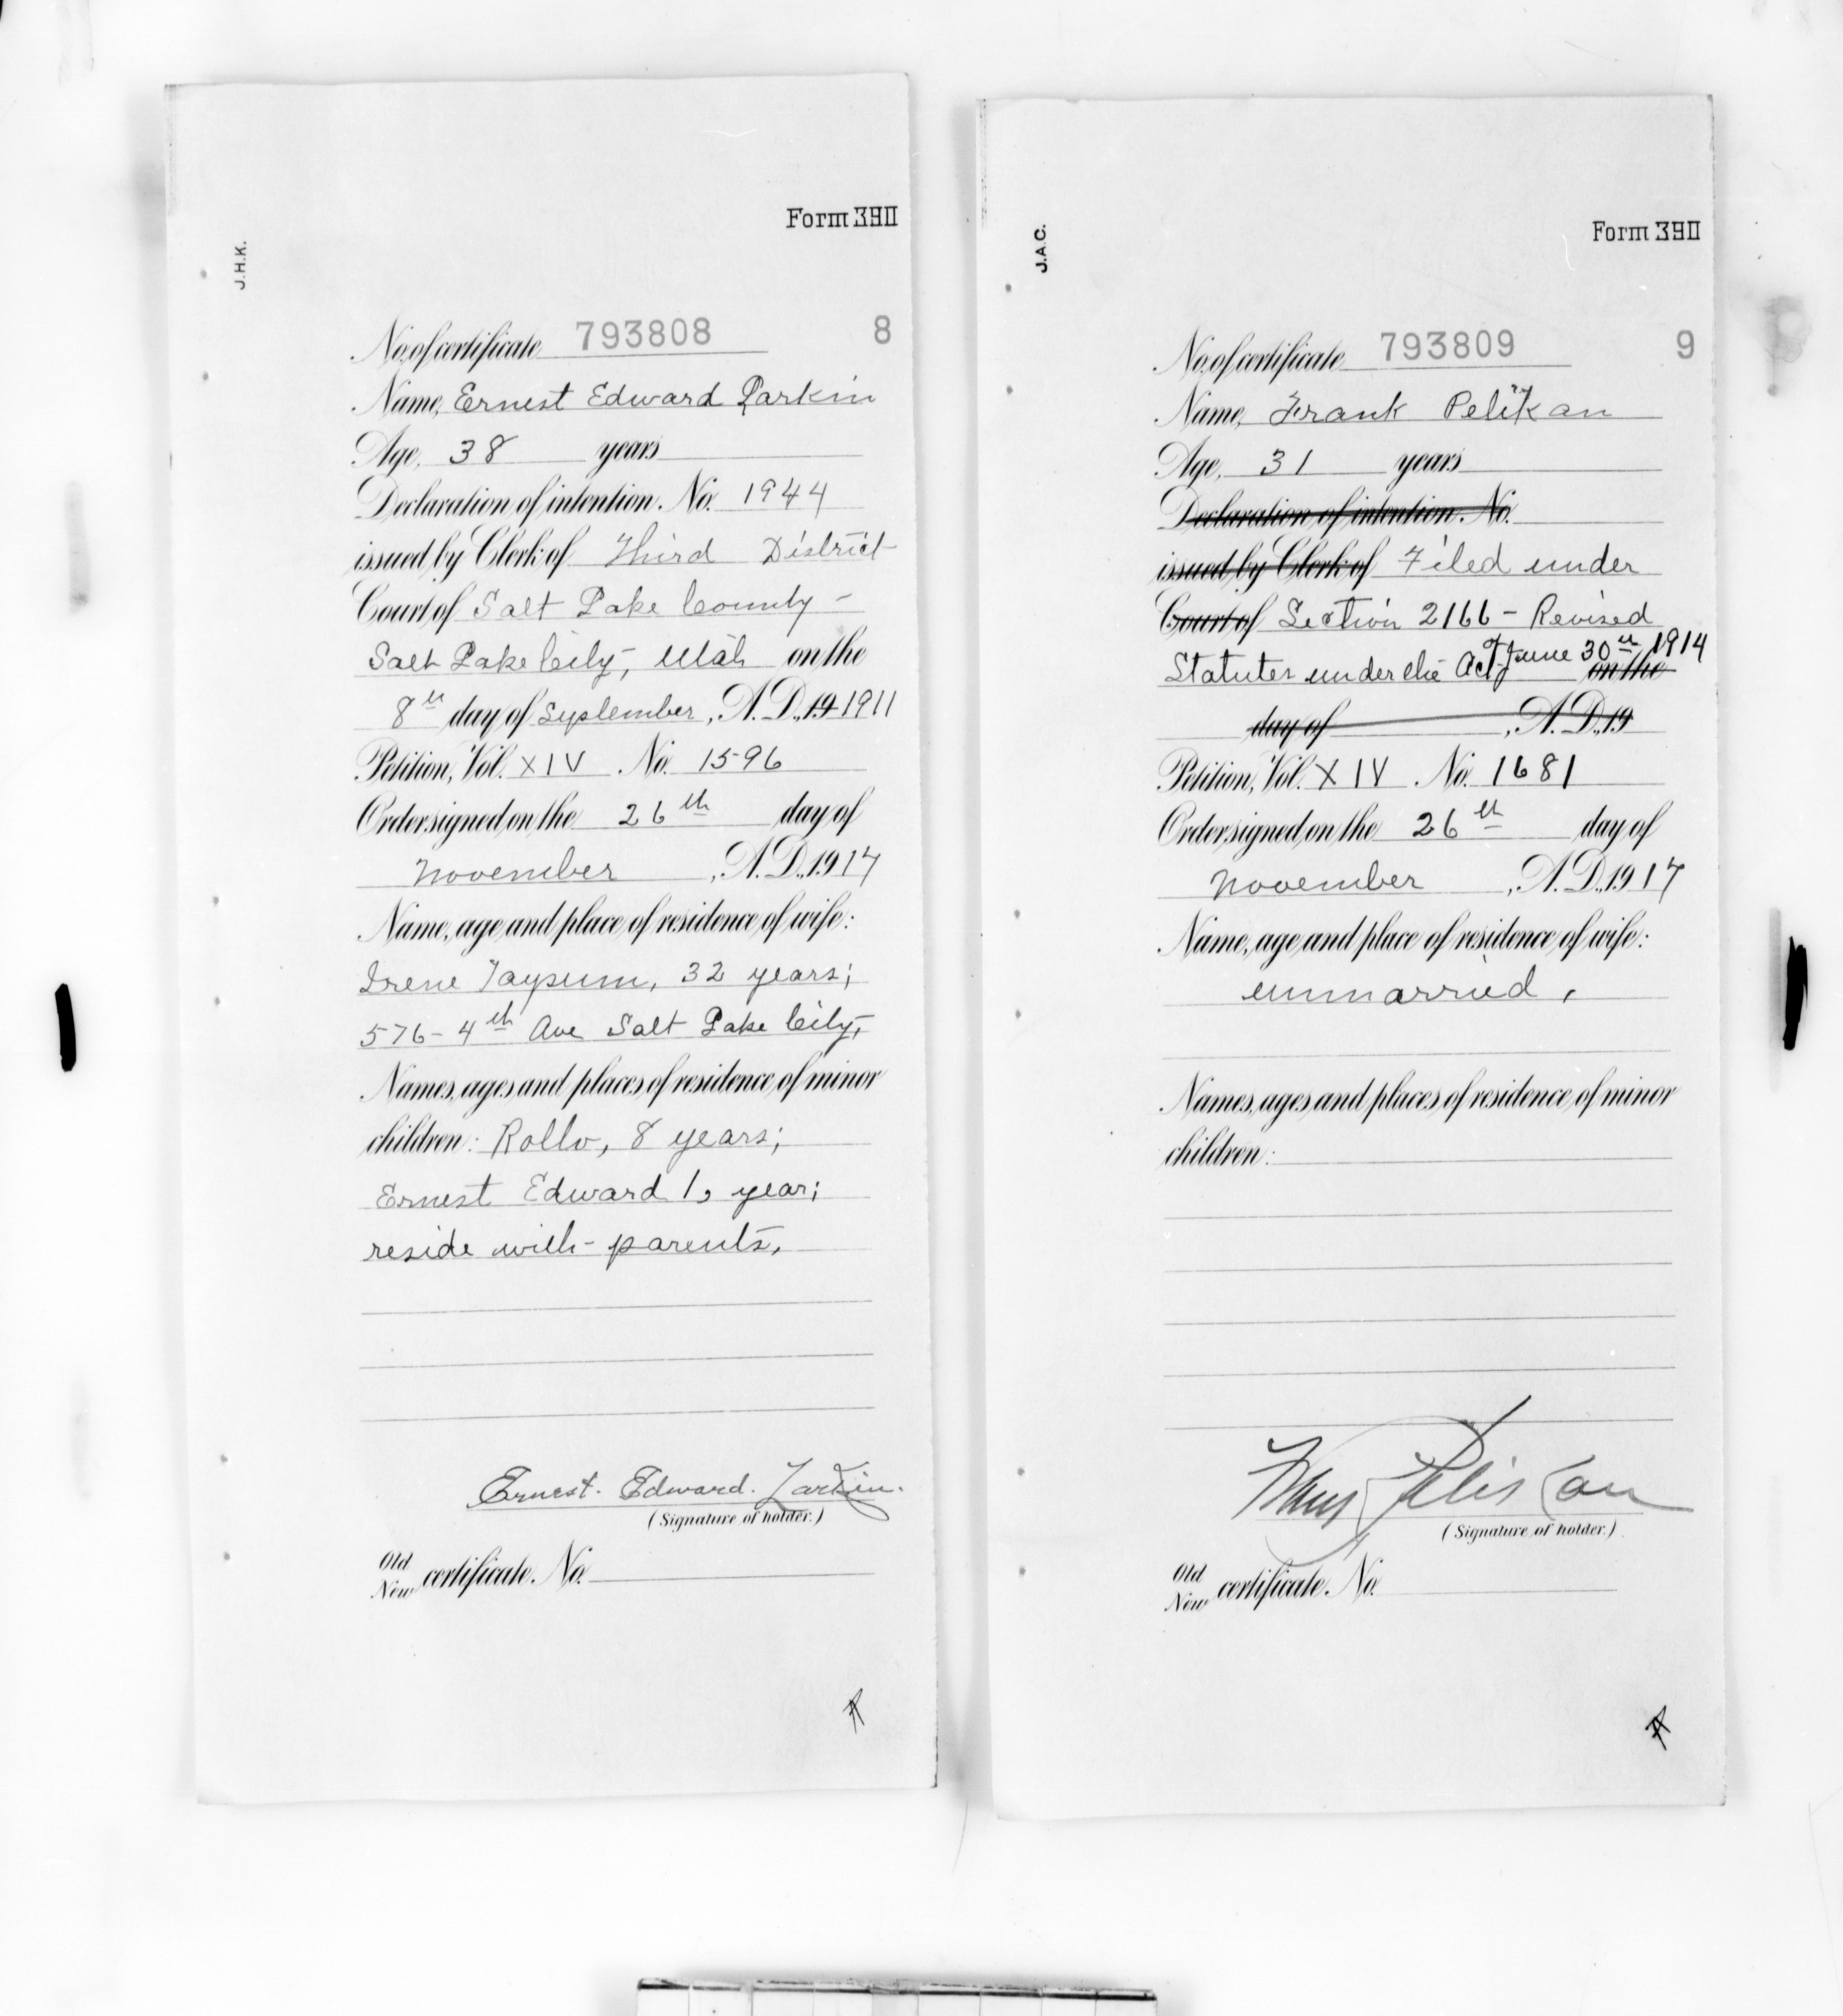 Form 390
J.H.K.
No. of certificate 793808 8
Name, Ernest Edward Larkin
Age, 38 years
Declaration of intention. No. 1944
issued by Clerk of Third District
Court of Salt Lake County -
Salt Lake City, Utah on the
8th day of September, A.D. 19 1911
Petition, Vol. XIV No. 1596
Order signed on the 26th day of
November, A.D. 1917
Name, age and place of residence of wife:
Irene Taysum, 32 years;
576 - 4th Ave Salt Lake City,
Names, ages and places of residence of minor
children: Rollo, 8 years;
Ernest Edward 1, year;
reside with parents,
Ernest. Edward. Larkin.
(Signature of holder.)
Old
New certificate. No.
Form 390
J.A.C.
No. of certificate 793809 9
Name, Frank Pelikan
Age, 31 years
Declaration of intention. No.
issued by Clerk of Filed under
Court of Section 2166 - Revised
Statutes under the Act of June 30th 1914 on the
day of , A.D. 19
Petition, Vol. XIV No. 1681
Order signed on the 26th day of
November, A.D. 1917
Name, age and place of residence of wife:
unmarried,
Names, ages and places of residence of minor
children:
(Signature of holder.)
Old
New certificate. No.